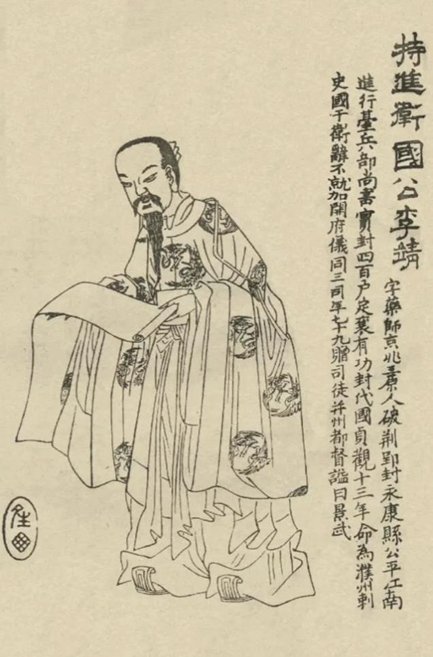 特進衛國公李靖
字藥師京兆三原人破荊郢封永康縣公平江南
進行臺兵部尚書實封四百戶定襄有功封代國貞觀十三年命為濮州刺
史國于衛辭不就加開府儀同三司年七十九贈司徒并州都督諡曰景武